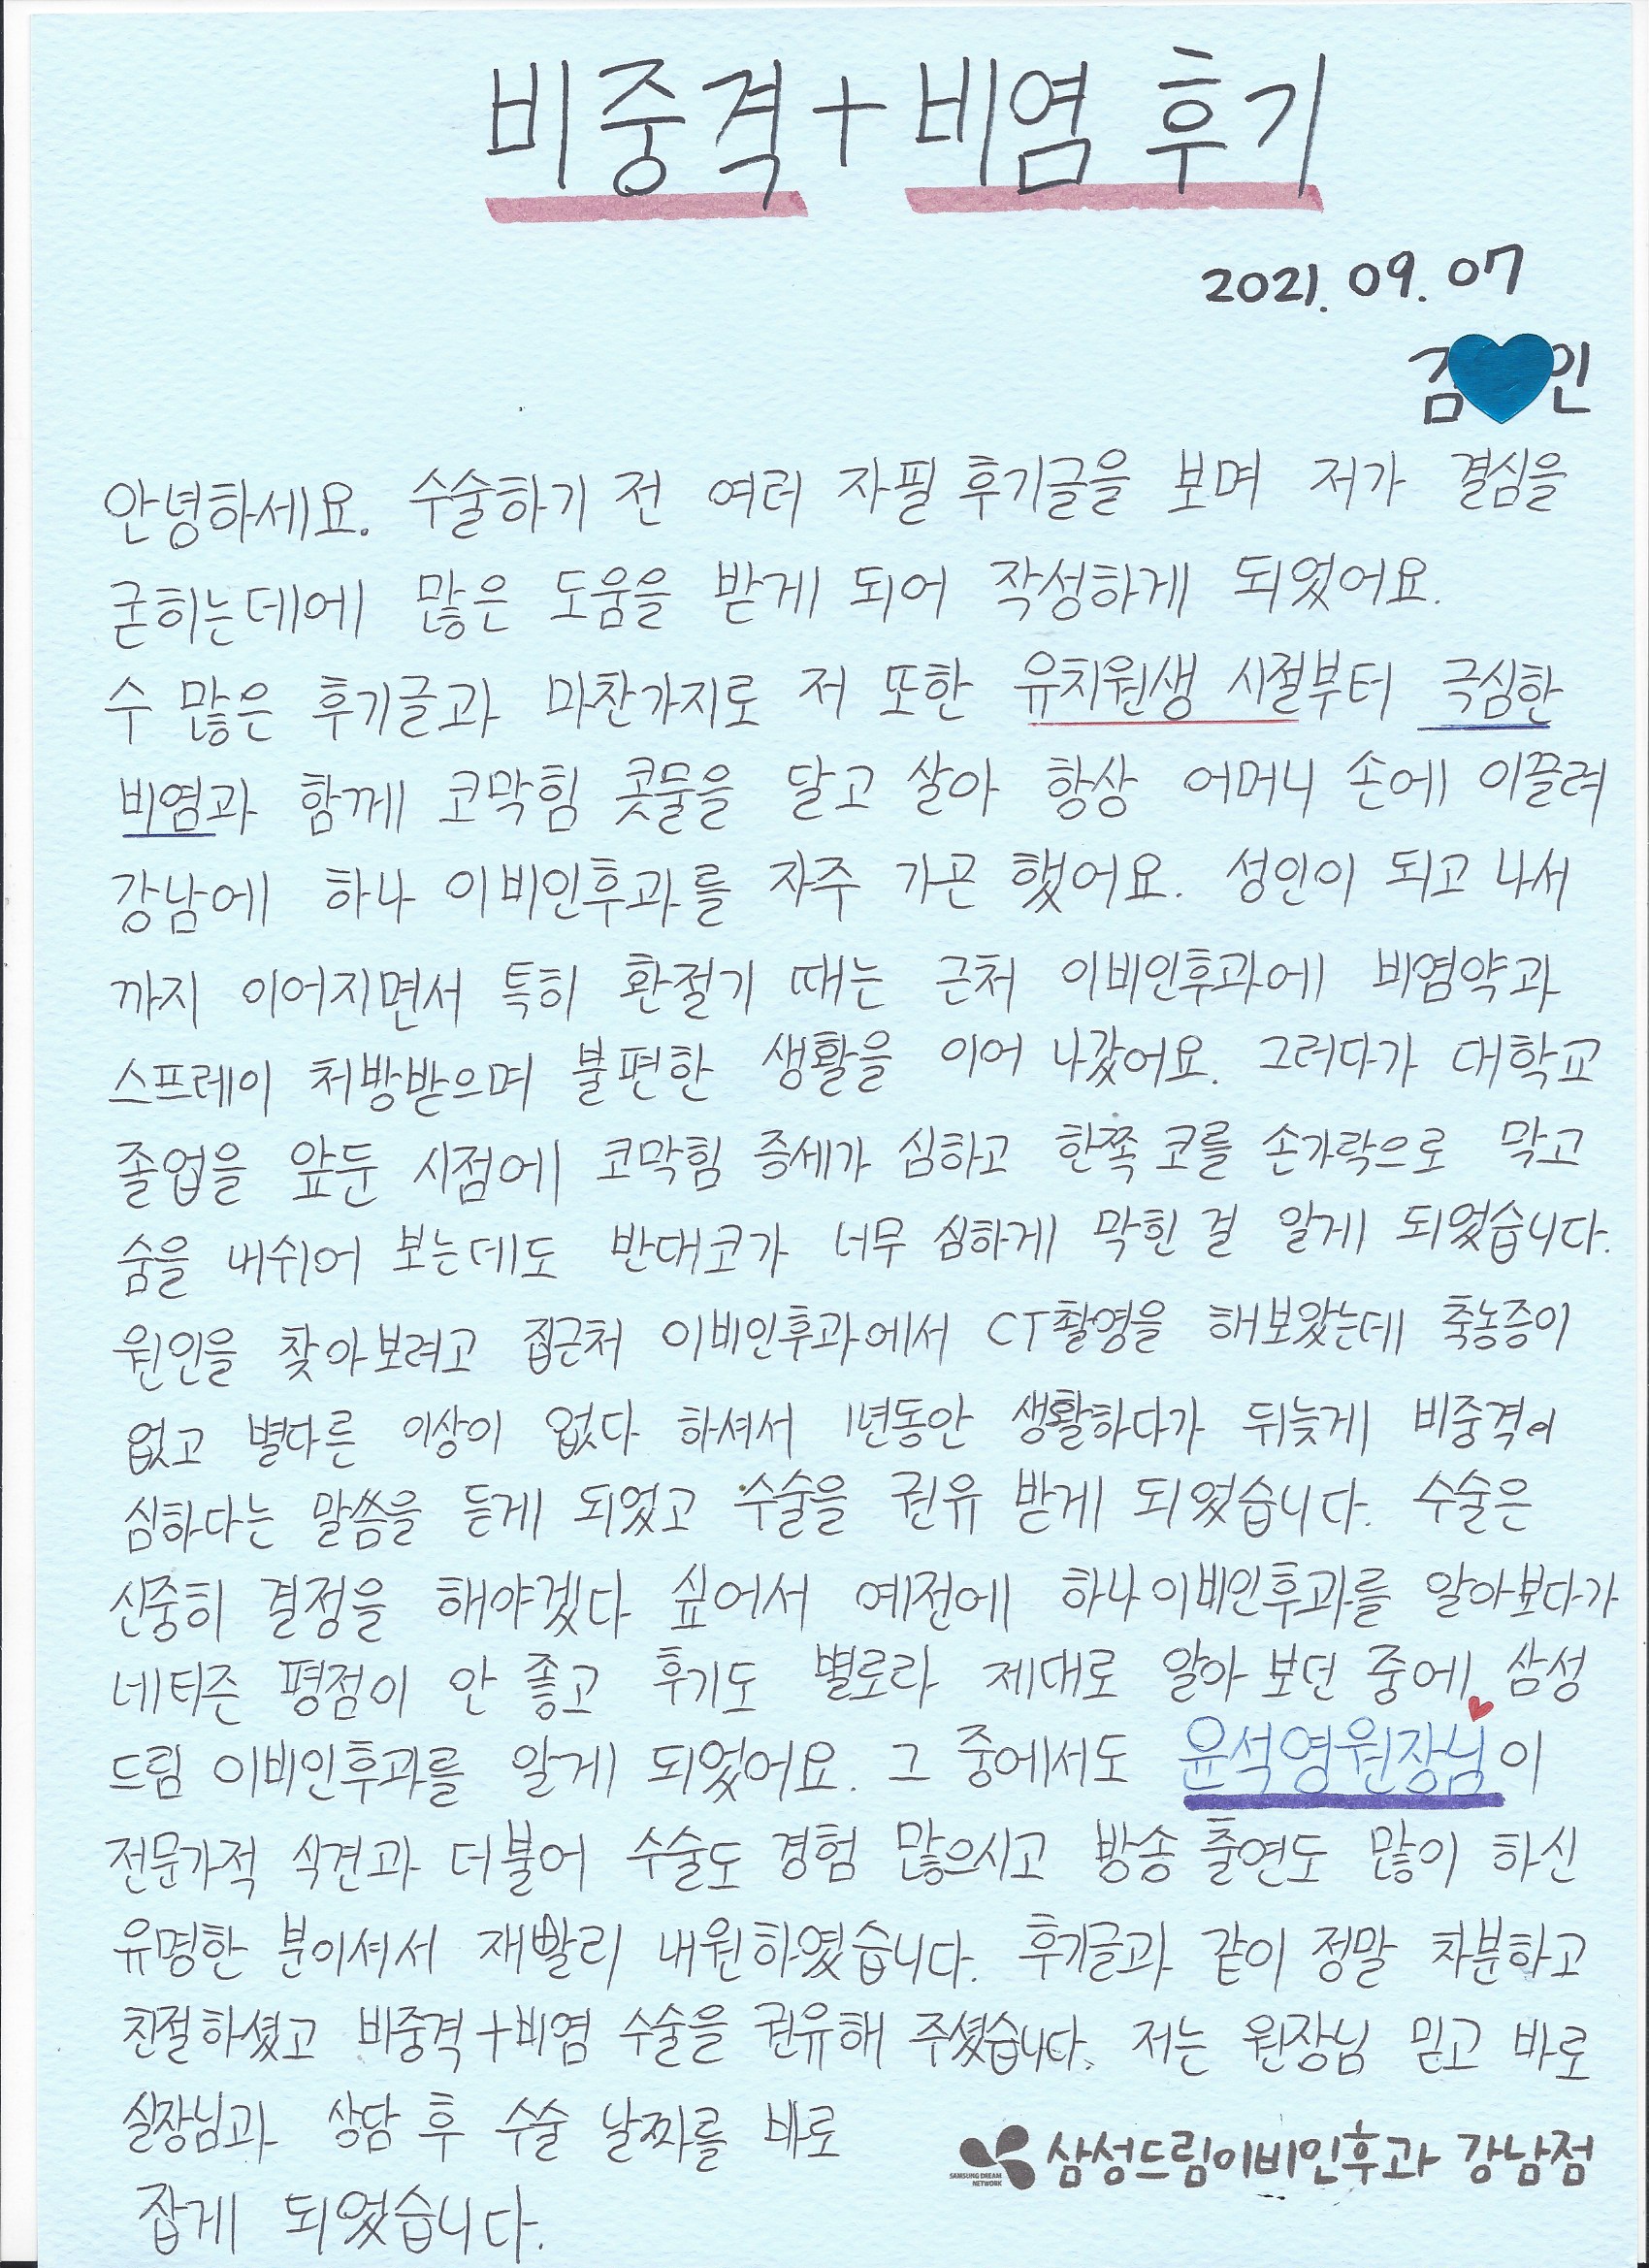 비중격+비염 후기
2021. 09. 07
김 인
안녕하세요. 수술하기 전 여러 자필 후기글을 보며 저가 결심을
굳히는데에 많은 도움을 받게 되어 작성하게 되었어요.
수 많은 후기글과 마찬가지로 저 또한 유치원생 시절부터 극심한
비염과 함께 코막힘 콧물을 달고 살아 항상 어머니 손에 이끌려
강남에 하나 이비인후과를 자주 가곤 했어요. 성인이 되고 나서
까지 이어지면서 특히 환절기 때는 근처 이비인후과에 비염약과
스프레이 처방받으며 불편한 생활을 이어 나갔어요. 그러다가 대학교
졸업을 앞둔 시점에 코막힘 증세가 심하고 한쪽 코를 손가락으로 막고
숨을 내쉬어 보는데도 반대코가 너무 심하게 막힌 걸 알게 되었습니다.
원인을 찾아보려고 집근처 이비인후과에서 CT촬영을 해보았는데 축농증이
없고 별다른 이상이 없다 하셔서 1년동안 생활하다가 뒤늦게 비중격이
심하다는 말씀을 듣게 되었고 수술을 권유 받게 되었습니다. 수술은
신중히 결정을 해야겠다 싶어서 예전에 하나이비인후과를 알아보다가
네티즌 평점이 안 좋고 후기도 별로라 제대로 알아 보던 중에 삼성
드림 이비인후과를 알게 되었어요. 그 중에서도 윤석영원장님이
전문가적 식견과 더불어 수술도 경험 많으시고 방송 출연도 많이 하신
유명한 분이셔서 재빨리 내원하였습니다. 후기글과 같이 정말 차분하고
친절하셨고 비중격+비염 수술을 권유해 주셨습니다. 저는 원장님 믿고 바로
실장님과 상담 후 수술 날짜를 바로
잡게 되었습니다.
SAMSUNG DREAM
NETWORK
삼성드림이비인후과 강남점